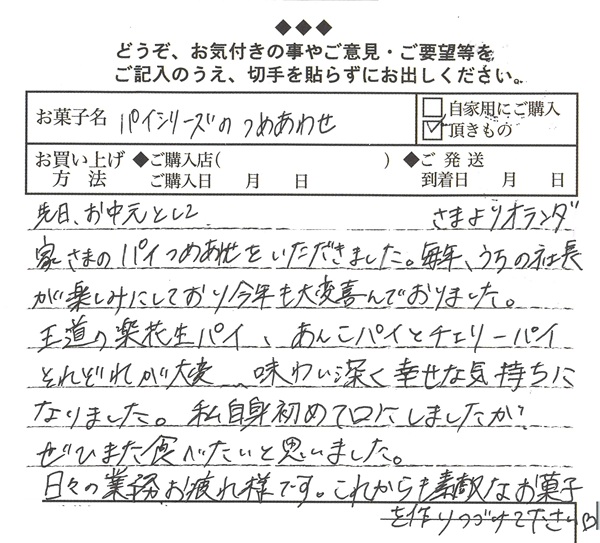 ◆◆◆
どうぞ、お気付きの事やご意見・ご要望等を
ご記入のうえ、切手を貼らずにお出しください。
お菓子名 パイシリーズの つめあわせ
自家用にご購入
頂きもの
お買い上げ方法 ◆ご購入店( )
ご購入日 月 日
◆ご発送
到着日 月 日
先日、お中元として さまよりオランダ
家さまのパイつめあわせをいただきました。毎年、うちの社長
が楽しみにしており今年も大変喜んでおりました。
王道の楽花生パイ、あんこパイとチェリーパイ
それぞれが大変 味わい深く幸せな気持ちに
なりました。私自身初めて口にしましたが
ぜひまた食べたいと思いました。
日々の業務お疲れ様です。これからも素敵なお菓子
を作りつづけて下さい♡